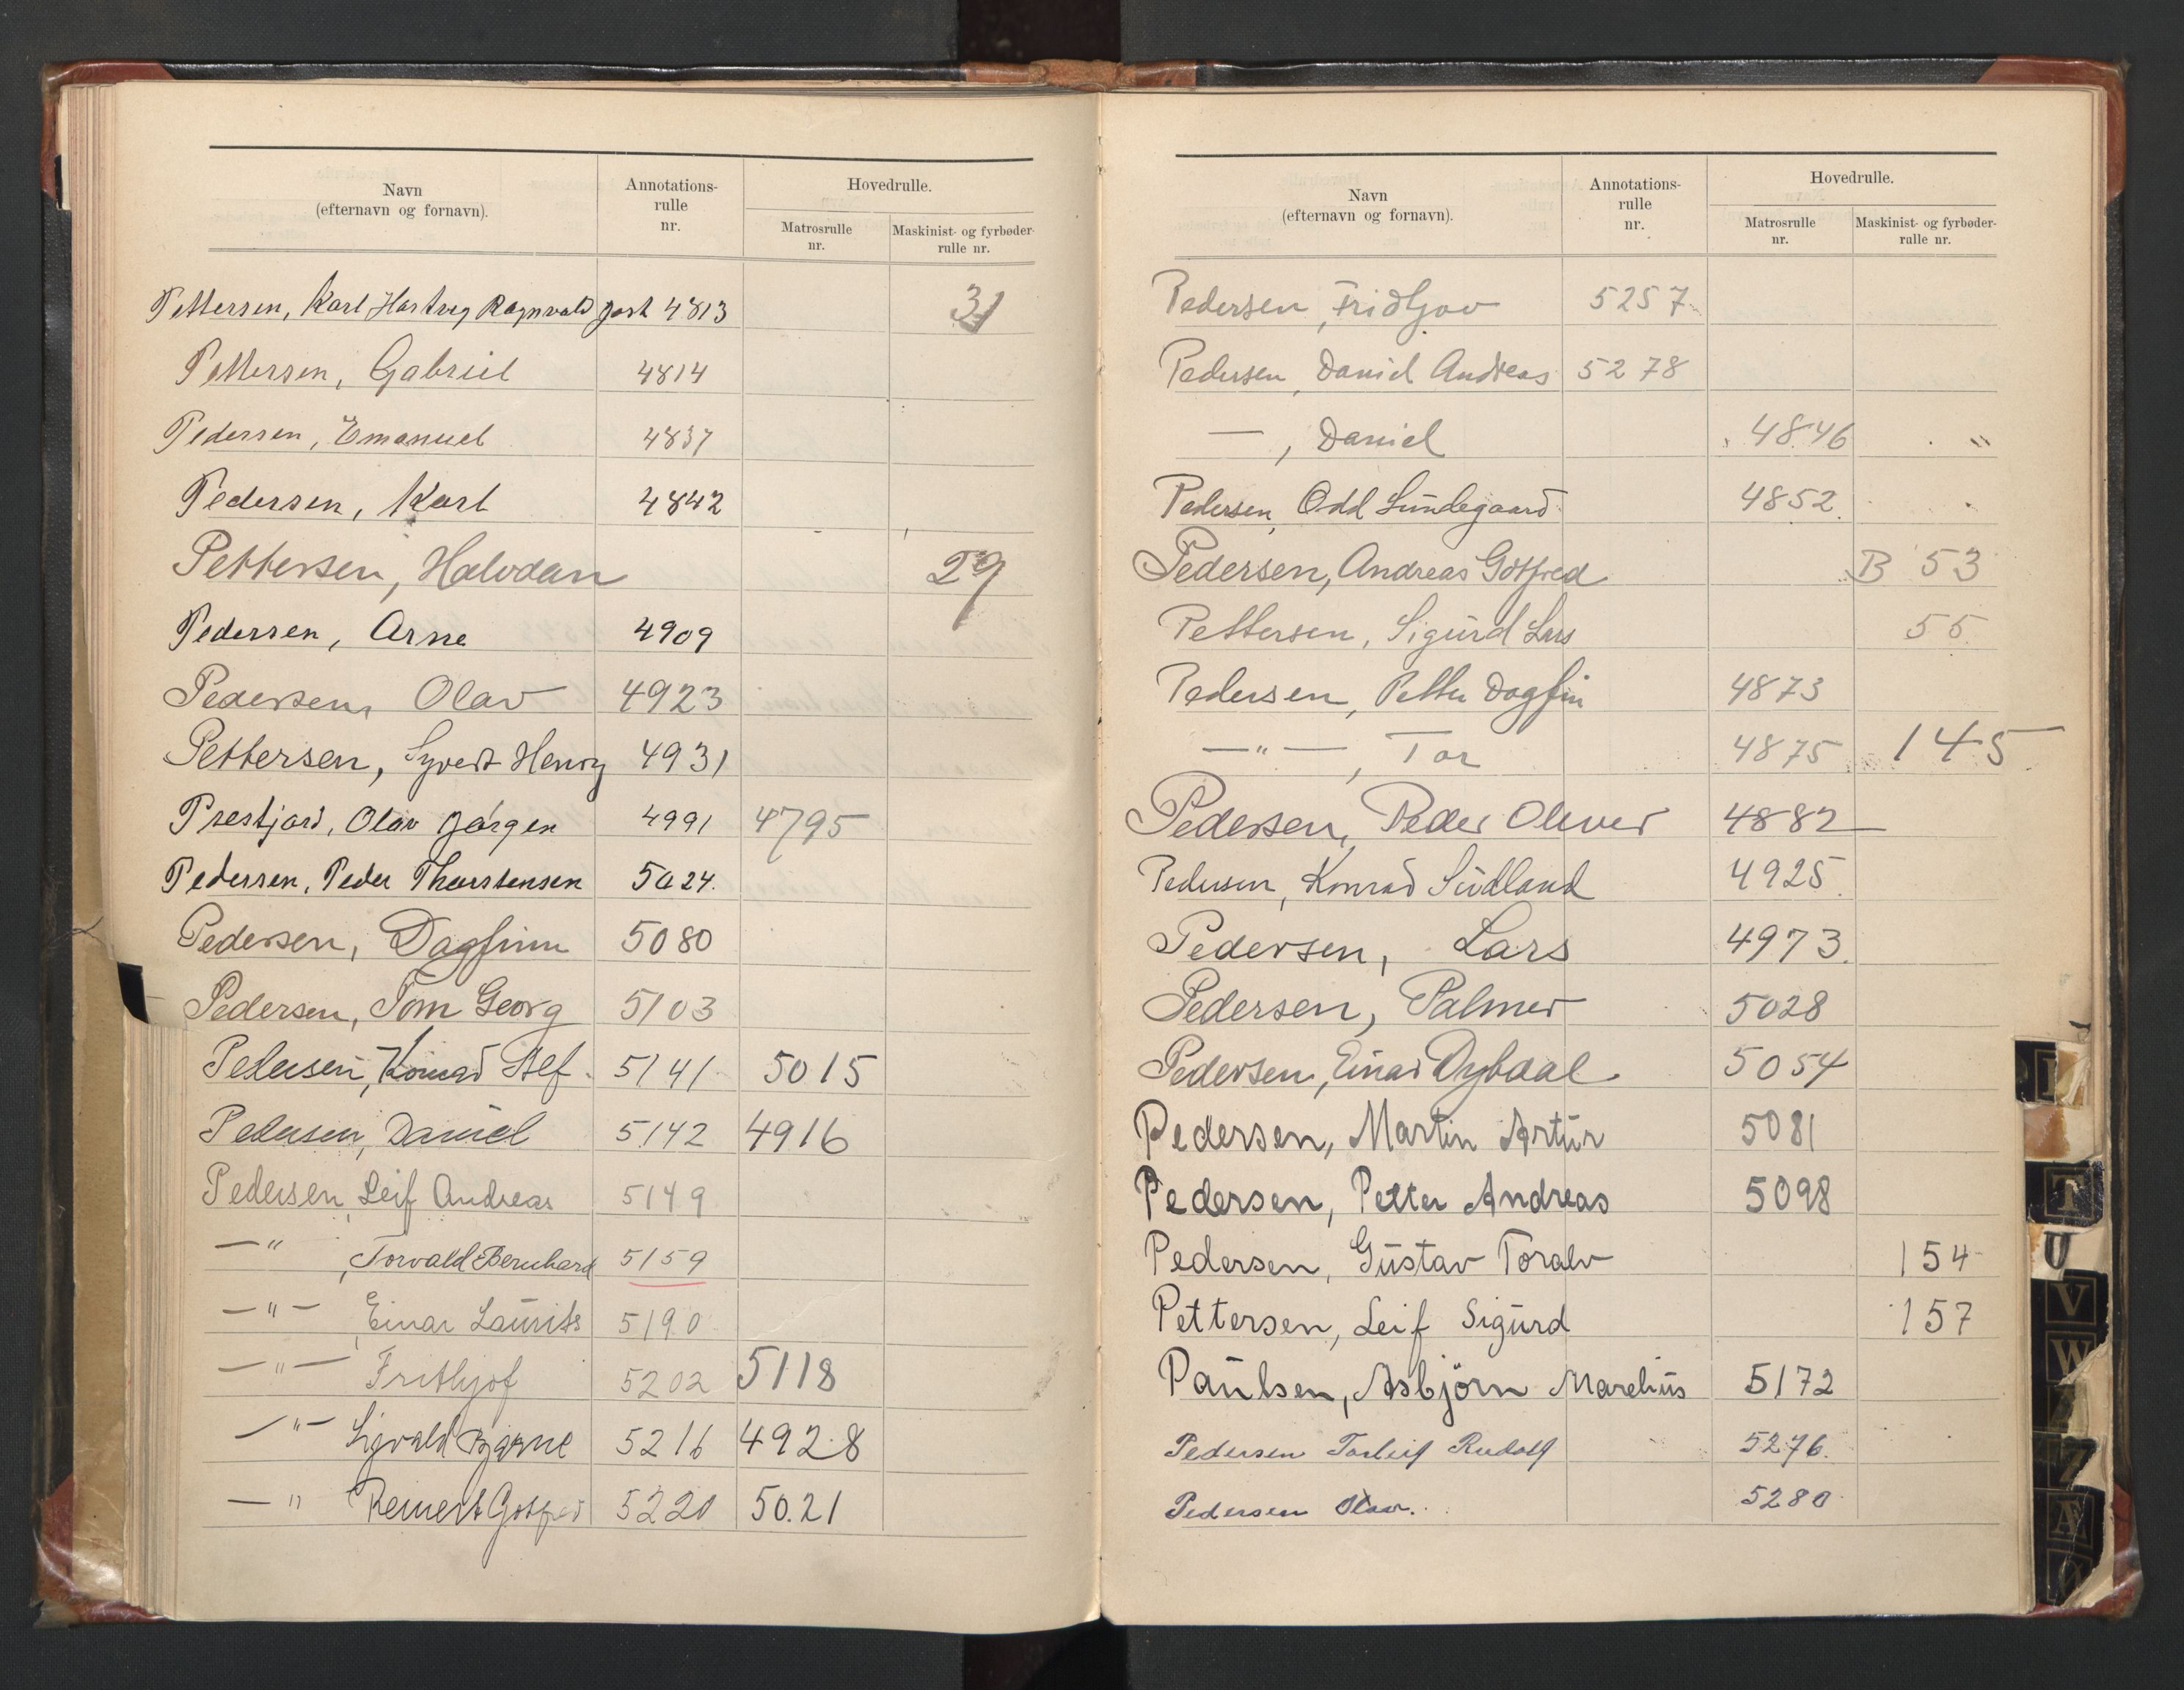 Navn
(efternavn og fornavn).
Annotations-
rulle
nr.
Hovedrulle.
Matrosrulle
nr.
Maskinist- og fyrbøder-
rulle nr.
Pettersen, Karl Hartvig Ragnvald 4813 31
Pettersen, Gabriel 4814
Pedersen, Emanuel 4837
Pedersen, Karl 4842
Pettersen, Halvdan 29
Pedersen, Arne 4909
Pedersen, Olav 4923
Pettersen, Syvert Henry 4931
Prestjord, Olav Jørgen 4991 4795
Pedersen, Peder Thorstensen 5024.
Pedersen, Dagfinn 5080
Pedersen, Tom Georg 5103
Pedersen, Konrad Alf. 5141 5015
Pedersen, Daniel 5142 4916
Pedersen, Leif Andreas 5149
—"—, Torvald Bernhard 5159
—"—, Einar Laurits 5190
—"— Frithjof 5202 5118
—"— Sigvald Bjarne 5216 4928
—"— Reinert Gotfred 5220 5021
Navn
(efternavn og fornavn).
Annotations-
rulle
nr.
Hovedrulle.
Matrosrulle
nr.
Maskinist- og fyrbøder-
rulle nr.
Pedersen, Fridtjov 5257
Pedersen, Daniel Andreas 5278
—, Daniel 4846 "
Pedersen, Odd Lundegaard 4852
Pedersen, Andreas Gotfred B 53
Pettersen, Sigurd Lars 55
Pedersen, Petter Dagfin 4873
—"—, Tor 4875 145
Pedersen, Peder Oliver 4882
Pedersen, Konrad Sudland 4925
Pedersen, Lars 4973
Pedersen, Palmer 5028
Pedersen, Einar Dybdal 5054
Pedersen, Martin Artur 5081
Pedersen, Petter Andreas 5098
Pedersen, Gustav Toralv 154
Pettersen, Leif Sigurd 157
Paulsen, Asbjörn Marelius 5172
Pedersen Torleif Rudolf 5276.
Pedersen Olav. 5280
T
U
V
W
Z
Æ